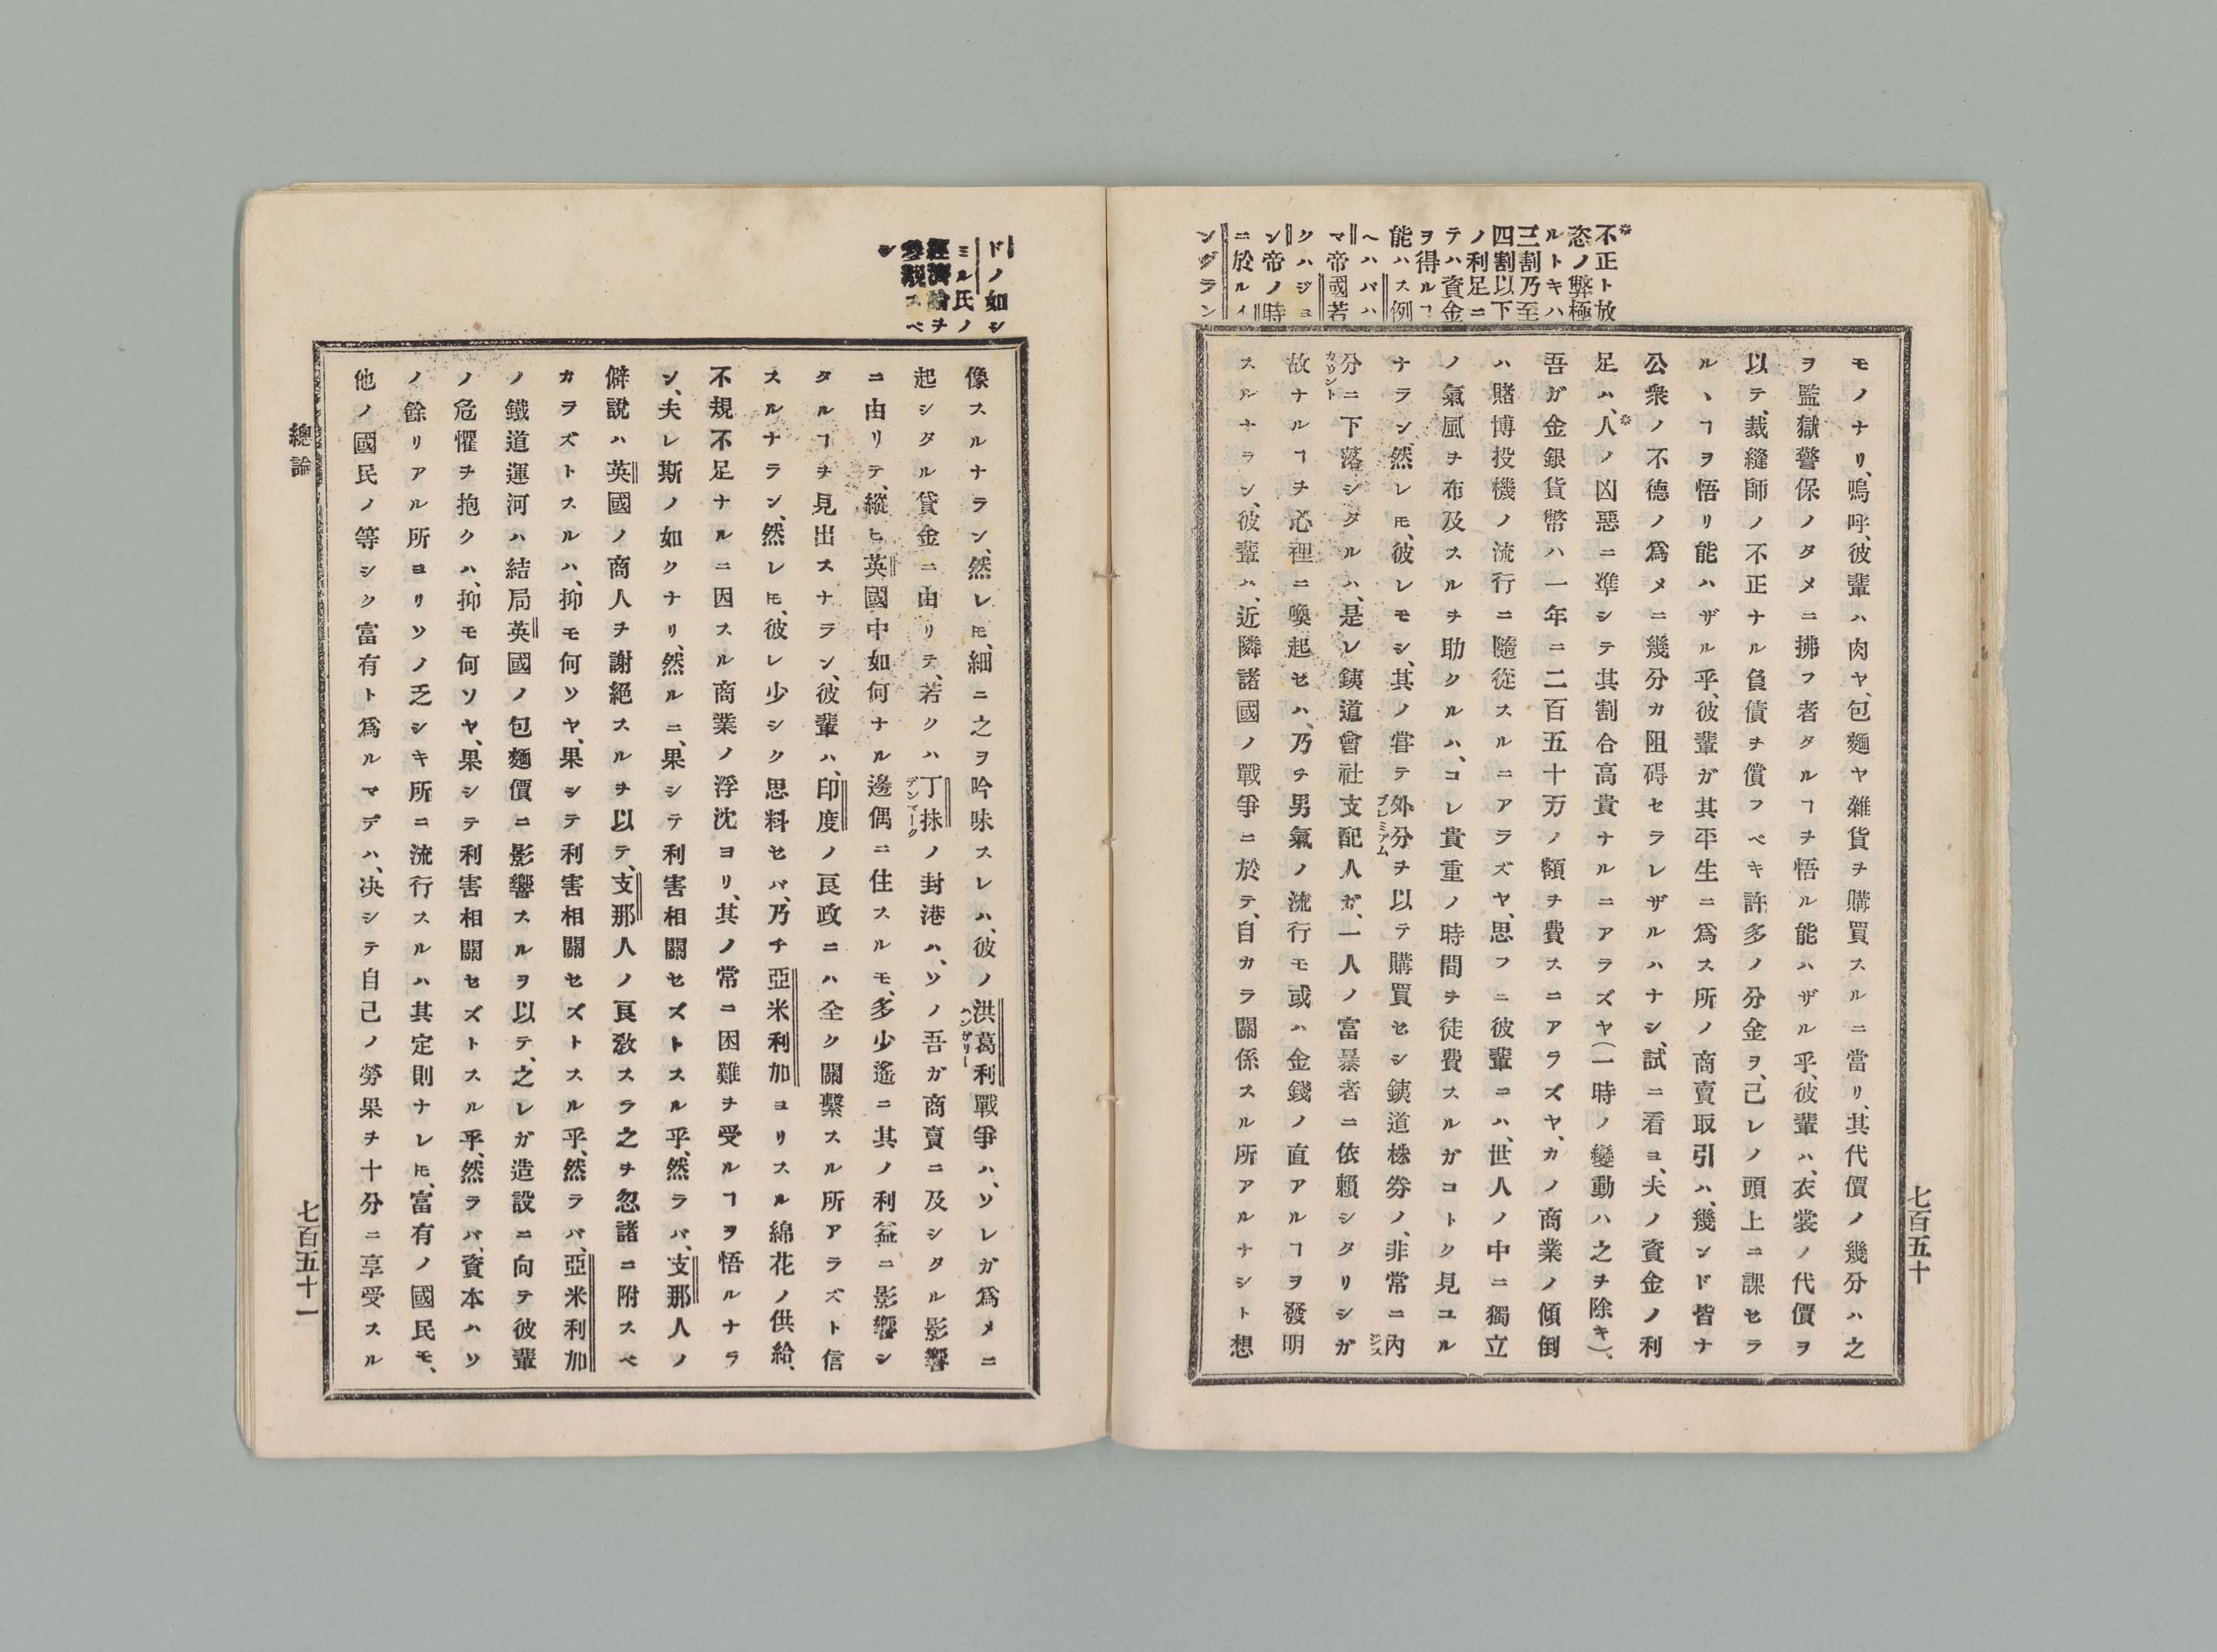 不正ト放
恣ノ弊極
ルトキハ
三割乃至
四割以下
ノ利足ニ
テハ資金
ヲ得ルヿ
能ハス例
ヘハバハ
マ帝國若
クハジョ
ン帝ノ時
ニ於ルイ
ングラン
モノナリ、嗚呼、彼輩ハ肉ヤ、包麺ヤ雜貨ヲ購買スルニ當リ、其代價ノ幾分ハ之
ヲ監獄警保ノタメニ拂フ者タルヿヲ悟ル能ハザル乎、彼輩ハ、衣裳ノ代價ヲ
以テ、裁縫師ノ不正ナル負債ヲ償フベキ許多ノ分金ヲ、己レノ頭上ニ課セラ
ルヽヿヲ悟リ能ハザル乎、彼輩ガ其平生ニ爲ス所ノ商賣取引ハ、幾ンド皆ナ
公衆ノ不德ノ爲メニ幾分カ阻碍セラレザルハナシ、試ニ看ヨ、夫ノ資金ノ利
足ハ、人ノ凶惡ニ準シテ其割合高貴ナルニアラズヤ（一時ノ變動ハ之ヲ除キ）、
吾ガ金銀貨幣ハ一年ニ二百五十万ノ額ヲ費スニアラズヤ、カノ商業ノ傾倒
ハ賭博投機ノ流行ニ隨從スルニアラズヤ、思フニ彼輩ニハ、世人ノ中ニ獨立
ノ氣風ヲ布及スルヲ助クルハ、コレ貴重ノ時間ヲ徒費スルガコトク見ユル
ナラン然レ𪜈、彼レモシ、其ノ甞テ外分ヲ以テ購買セシ鉄道株券ノ、非常ニ内
プレミアム
ジス
分ニ下落シタルハ、是レ鉄道會社支配人ガ、一人ノ富暴者ニ依賴シタリシガ
カウント
故ナルヿヲ心裡ニ喚起セハ、乃チ男氣ノ流行モ或ハ金錢ノ直アルヿヲ發明
スルナラン、彼輩ハ、近隣諸國ノ戰爭ニ於テ、自カラ關係スル所アルナシト想
七百五十
ドノ如シ
ミル氏ノ
經濟論ヲ
參觀スベ
シ
像スルナラン、然レ𪜈、細ニ之ヲ吟味スレハ、彼ノ洪葛利戰爭ハ、ソレガ爲メニ
ハンガリー
起シタル貸金ニ由リテ、若クハ丁抹ノ封港ハ、ソノ吾ガ商賣ニ及シタル影響
デンマーク
ニ由リテ、縱ヒ英國中如何ナル邊偶ニ住スルモ、多少遙ニ其ノ利益ニ影響シ
タルヿヲ見出スナラン、彼輩ハ、印度ノ良政ニハ全ク關繫スル所アラズト信
スルナラン、然レ𪜈、彼レ少シク思料セバ、乃チ亞米利加ヨリスル綿花ノ供給、
不規不足ナルニ因スル商業ノ浮沈ヨリ、其ノ常ニ困難ヲ受ルヿヲ悟ルナラ
ン、夫レ斯ノ如クナリ、然ルニ、果シテ利害相關セズトスル乎、然ラバ、支那人ノ
僻說ハ英國ノ商人ヲ謝絕スルヲ以テ、支那人ノ良敎スラ之ヲ忽諸ニ附スベ
カラズトスルハ、抑モ何ソヤ、果シテ利害相關セズトスル乎、然ラバ、亞米利加
ノ鐵道運河ハ結局英國ノ包麵價ニ影響スルヲ以テ、之レガ造設ニ向テ彼輩
ノ危懼ヲ抱クハ、抑モ何ソヤ、果シテ利害相關セズトスル乎、然ラバ、資本ハソ
ノ餘リアル所ヨリソノ乏シキ所ニ流行スルハ其定則ナレ𪜈、富有ノ國民モ、
他ノ國民ノ等シク富有ト爲ルマデハ、决シテ自己ノ勞果ヲ十分ニ享受スル
總論
七百五十一